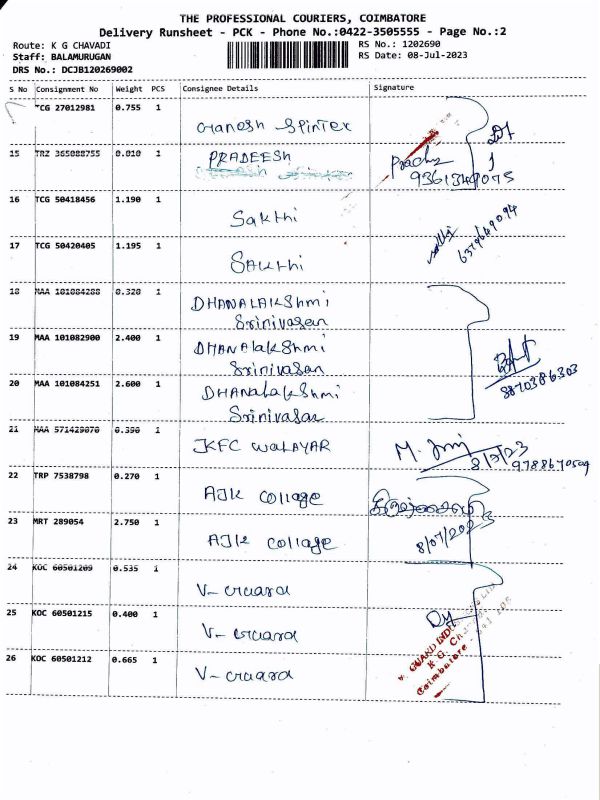 THE PROFESSIONAL COURIERS, COIMBATORE
Delivery Runsheet - PCK - Phone No.:0422-3505555 - Page No.:2
Route: K G CHAVADI RS No.: 1202690
Staff: BALAMURUGAN RS Date: 08-Jul-2023
DRS No.: DCJB120269002
S No Consignment No Weight PCS Consignee Details Signature
TCG 27012981 0.755 1
Ganesh Spintex
15 TRZ 365088755 0.010 1 PRADEESh
9361349075
16 TCG 50418456 1.190 1
Sakthi 6379649094
17 TCG 50420405 1.195 1
SAkthi
18 MAA 101084288 0.320 1 DHANALAkShmi
Srinivasan
19 MAA 101082900 2.400 1 DHANAlakShmi
Srinivasan
20 MAA 101084251 2.600 1 DHANAlakShmi 8870386303
Srinivasan
21 MAA 571429070 0.390 1
JKFC WALAYAR M. 8/7/23
9788670509
22 TRP 7538798 0.270 1
AJK Collage
23 MRT 289054 2.750 1
AJK Collage 8/07/2023
24 KOC 60501209 0.535 1
V-Guard
25 KOC 60501215 0.400 1
V-Guard
26 KOC 60501212 0.665 1
V-Guard
V. GUARD INDUSTRIES LTD
K. G. Chavadi
Coimbatore - 641 105